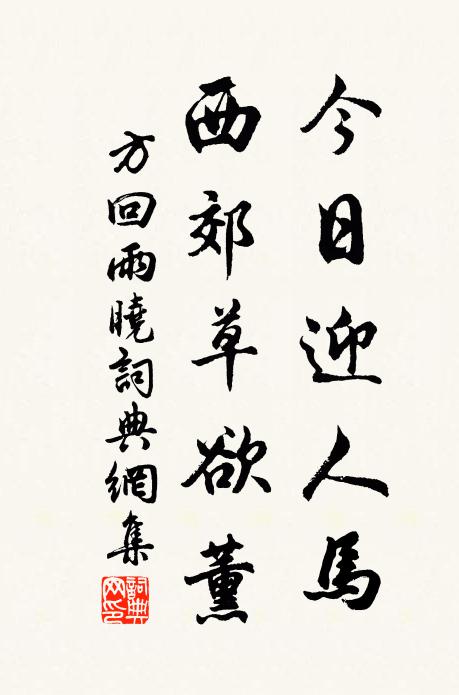 今日迎人馬
西郊草欲薰
方回雨曉詞典網集
詞典
网印